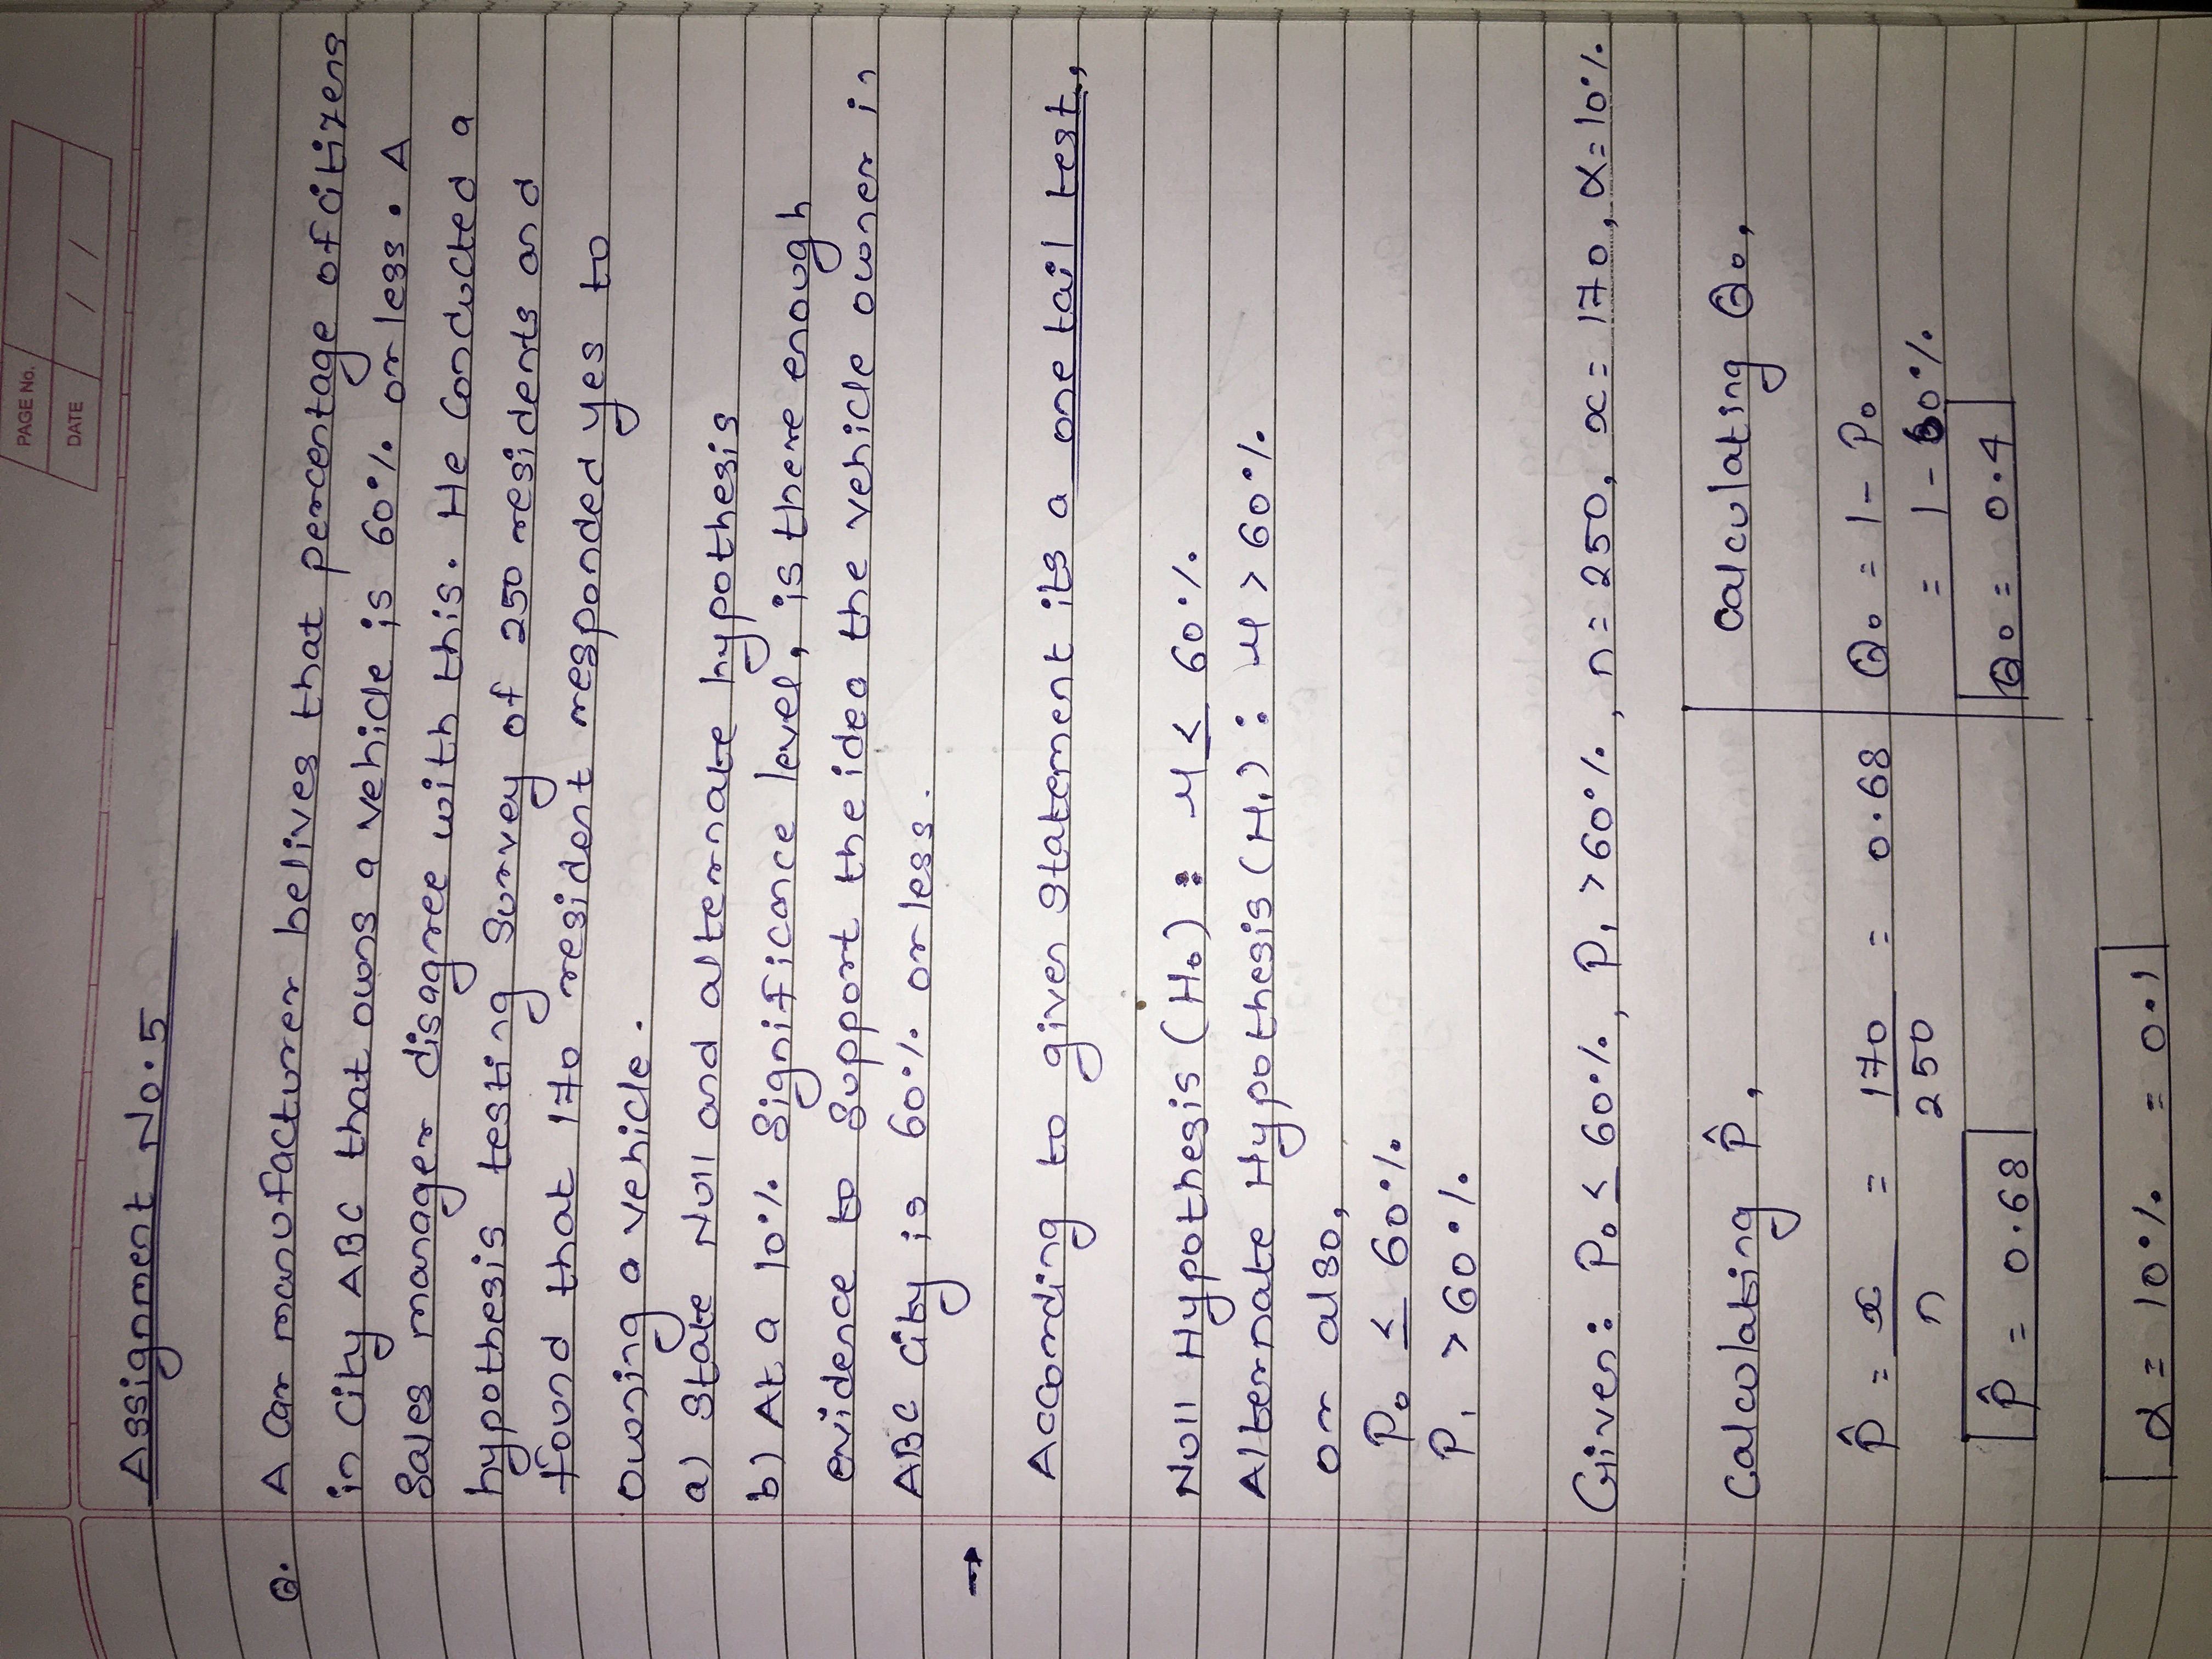 PAGE No.
DATE / /
Assignment No. 5
Q. A Car manufacturer belives that percentage of citizens
in City ABC that owns a vehicle is 60% or less. A
Sales manager disagree with this. He Conducted a
hypothesis testing Survey of 250 residents and
found that 170 resident responded yes to
owning a vehicle.
a) State Null and alternate hypothesis
b) At a 10% Significance level, is there enough
evidence to support the idea the vehicle owner in
ABC City is 60% or less.
→
According to given statement its a one tail test,
Null Hypothesis (H₀) : μ ≤ 60%
Alternate Hypothesis (H₁) : μ > 60%
or also,
P₀ ≤ 60%
P₁ > 60%
Given: P₀ ≤ 60%, P₁ > 60%, n = 250, x = 170, α = 10%
Calculating P̂,
P̂ = x/n = 170/250 = 0.68
P̂ = 0.68
Calculating Q₀,
Q₀ = 1 - P₀
= 1 - 60%
Q₀ = 0.4
α = 10% = 0.1